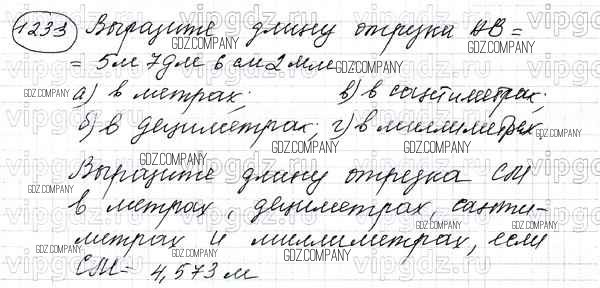 1233 Выразите длину отрезка АВ =
= 5м 7дм 6см 2мм
а) в метрах; в) в сантиметрах;
б) в дециметрах; г) в миллиметрах.
Выразите длину отрезка СМ
в метрах, дециметрах, санти-
метрах и миллиметрах, если
СМ = 4,573 м